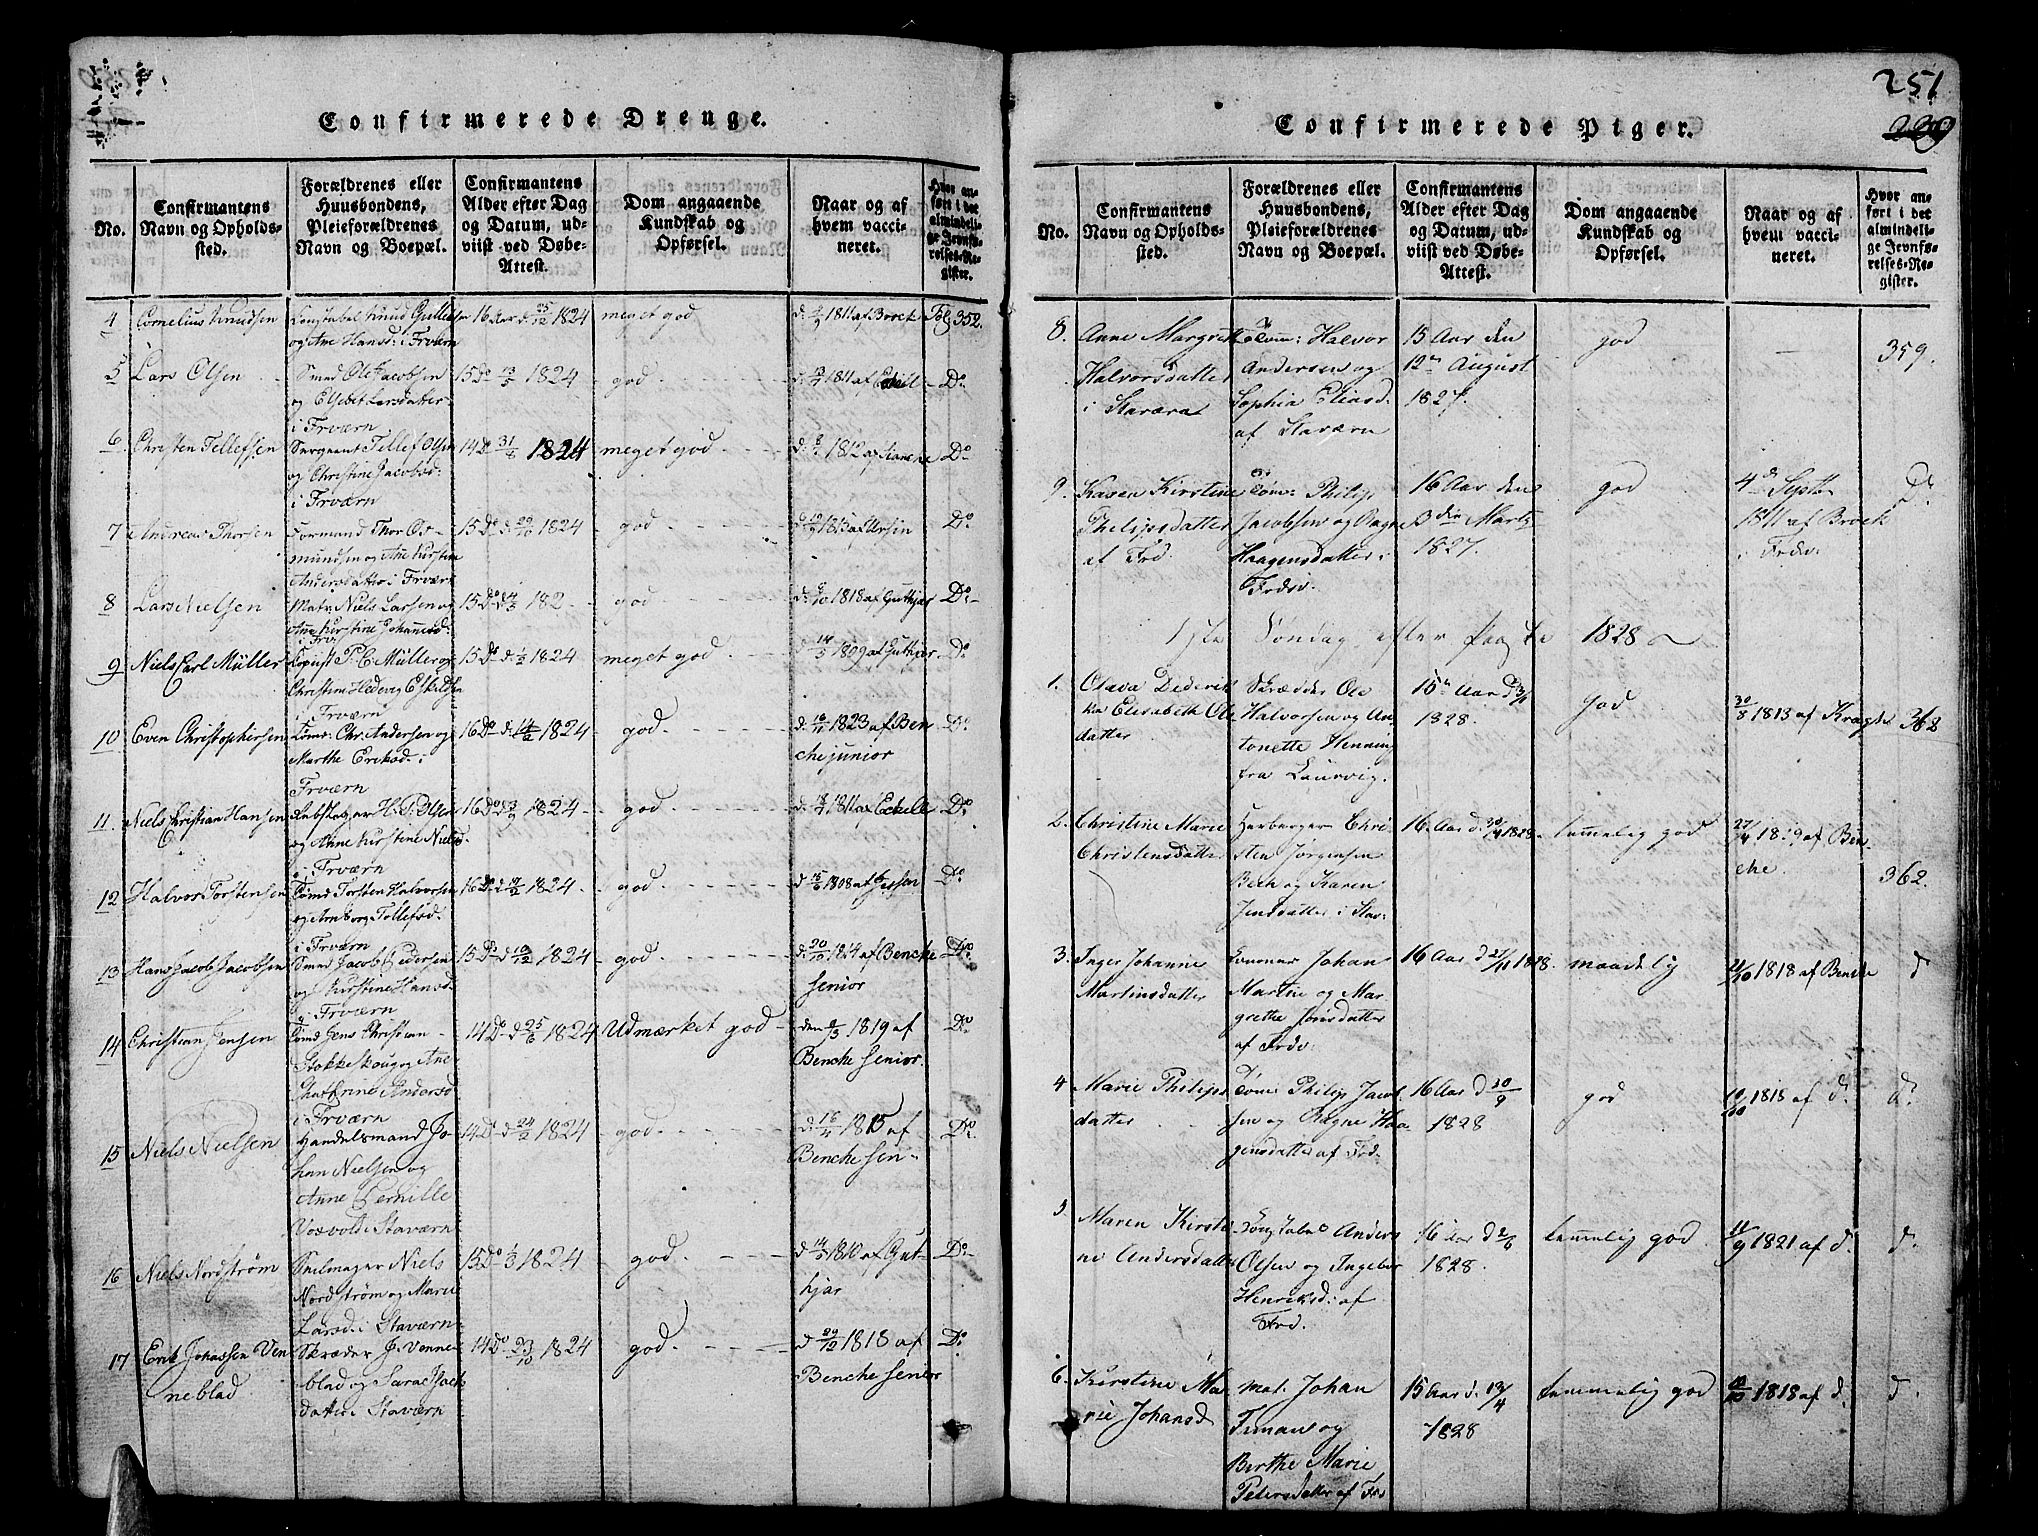 Confirmerede Drenge.
No.
Confirmantens
Navn og Opholds-
sted.
Forældrenes eller
Huusbondens,
Pleieforældrenes
Navn og Boepæl.
Confirmantens
Alder efter Dag
og Datum, ud-
viist ved Døbe-
Attest.
Dom angaaende
Kundskab og
Opførsel.
Naar og af
hvem vacci-
neret.
Hvor an-
ført i det
almindeli-
ge Jevnfø-
relses-Re-
gister.
4
Cornelius Knudsen
Constabel Knud Gullessen
og Ane Hansd: i Frværn
16 Aar d 25/12 1824
meget god
1811 af Bock
Fol 352.
5
Lars Olsen
Smed Ole Jacobsen
og Elsebet Larsdatter
i Frværn
15 Do 13/5 1824
god
1811 af Eckell
Do
6
Christen Tellefsen
Sergeant Tellef Olsen
og Christine Jacobsd:
i Frværn
14 Do 31/8 1824
meget god
d. 8/7 1812 af
Do
7
Andreas Thorsen
Formand Thor Os-
mundsen og Ane Kirstine
Andersdatter i Frværn
15 Do d 29/10 1824
god
1813 af
Do
8
Lars Nielsen
Matr. Niels Larsen og
Ane Kirstine Johannesd:
i Frv
15 Do d 14/3 182
god
1818 af Guthjar
Do
9
Niels Carl Müller
Copiist P. C. Müller og
Christine Hedevig Eskildsen
i Frværn
15 Do d. 1/2 1824
meget god
d: 14/5 1809 af Guthjar
Do
10
Even Christophersen
Tømr. Chr. Andersen og
Marthe Eriksd: i
Frværn
16 Do d. 14/2 1824
god
d. 16/11 1823 af Ben
che junior
Do
11
Niels Christian Hansen
Rebslager H. P. Olsen
og Anne Kirstine Nielsd.
i Frværn
16 Do d 3/9 1824
god
1811 af Eckell
Do
12
Halvor Torstensen
Tømd Torsten Halvorsen
og Anborg Tollefsd.
i Frværn
16 Do d 17/12 1824
god
d 15/6 1808 af Jessen
Do
13
Hans Jacob Jacobsen
Smed Jacob Pedersen
og Kirstine Hansd.
i Frværn
15 Do d 10/12 1824
god
d: 20/10 1814 af Benche
senior
Do
14
Christian Jensen
Tømd Jens Christian
Stokke Skoug og Ane
Chathrine Andersd
i Frværn
14 Do d 25/6 1824
Udmærket god
den 9/3 1819 af
Benche senior.
Do
15
Niels Nielsen
Handelsmand Jo-
han Nielsen og
Anne Pernille
Voxvold i Staværn
14 Do d 24/2 1824
god
d: 16/4 1815 af
Benche sen
Do
16
Niels Nordstrøm
Seilmager Niels
Nordstrøm og Marie
Larsd: i Staværn
15 Do 1/3 1824
god
d 14/5 1810 af Gut-
hjar
Do
17
Erik Johassen Ven
neblad
Skræder J. Venne-
blad og Sara Isach
datter i Staværn
14 Do 23/10 1824
god
d 29/12 1818 af
Benche senior
Do
251
239
Confirmerede Piger.
No.
Confirmantens
Navn og Opholds-
sted.
Forældrenes eller
Huusbondens,
Pleieforældrenes
Navn og Boepæl.
Confirmantens
Alder efter Dag
og Datum, ud-
viist ved Døbe-
Attest.
Dom angaaende
Kundskab og
Opførsel.
Naar og af
hvem vacci-
neret.
Hvor an-
ført i det
almindeli-
ge Jevnfø-
relses-Re-
gister.
8.
Anne Margreth
Halvorsdatter
i Staværn
Tøm: Halvor
Andersen og
Sophia Eliasd.
af Staværn
15 Aar den
12te August
1827.
god
359.
9.
Karen Kirstine
Philipsdatter
af Frd.
Tøm: Philip
Jacobsen og Ragne
Haagensdatter i
Frdv.
16 Aar den
3die Marts
1827.
god
4de Septb
1811 af Brock
i Frdv.
Do
1ste Søndag efter Paaske 1828
1.
Olava Dederik
ka Elisabeth Ols
datter
Skrædder Ole
Halvorsen og An-
tonette Henning
fra Laurvig.
15 Aar d 3/1
1828.
god
30/8 1813 af Kragh
362
2.
Christine Marie
Christensdatter
Herberger Chri-
sten Jørgensen
Bech og Karen
Jensdatter i Stav:
16 Aar d. 30/4 1828.
temmelig god
27/4 1819 af Ben
che
362.
3.
Inger Johanne
Martinsdatter
Johan
Martin og Mar
grethe Jonsdatter
af Frdv.
16 Aar d 27/11 1828.
maadelig
21/10 1818 af Benche
d
4
Marie Philips
datter
Tøm: Philip Jacob
sen og Ragne Haa-
gensdatter af Frd.
16 Aar d 30/9
1828
god
10/10 1818 af d.
d.
5.
Maren Kirsti
ne Andersdatter
Anders
Olsen og Ingebor
Henriksd: af
Frd.
16 Aar d 2/6
1828.
temmelig god
11/9 1821 af d.
d.
6.
Kirstine Ma
rie Johansd
mat. Johan
Firman og
Berthe Marie
Petersdatter af Frd
15 Aar d. 19/4
1828
temmelig god
1818 af d.
d.